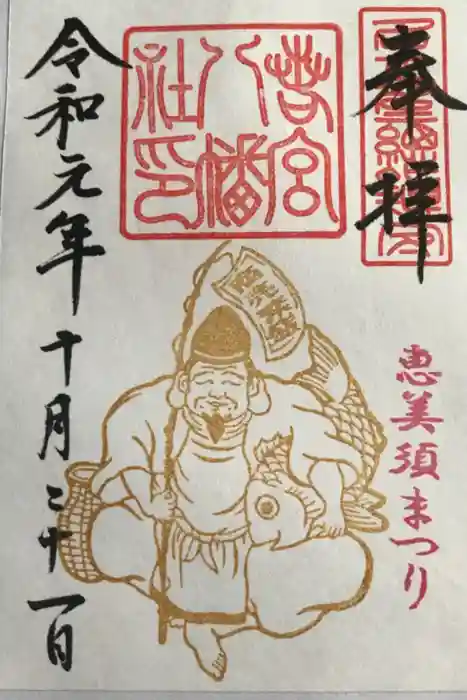 奉拝
若宮
八幡
社印
恵美須まつり
令和元年十月二十一日